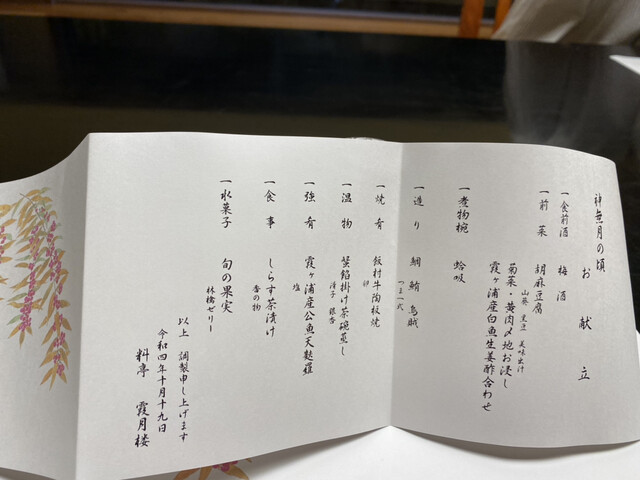 神無月の頃 お献立
一 食前酒 梅酒
一 前菜 胡麻豆腐
山葵 生豆 美味出汁
菊菜・黄肉〆地お浸し
霞ヶ浦産白魚生姜酢合わせ
一 煮物椀 蛤吸
一 造り 鯛 鮪 烏賊
つま一式
一 焼肴 飯村牛陶板焼
卵
一 温物 蟹餡掛け茶碗蒸し
滑子 銀杏
一 強肴 霞ヶ浦産公魚天麩羅
塩
一 食事 しらす茶漬け
香の物
一 水菓子 旬の果実
林檎ゼリー
以上 調製申し上げます
令和四年十月十九日
料亭 霞月楼